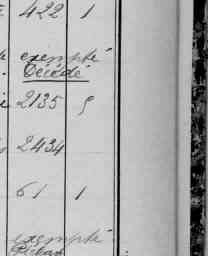 422 1
exempté
Décédé
2135 5
2434
61 1
exempté